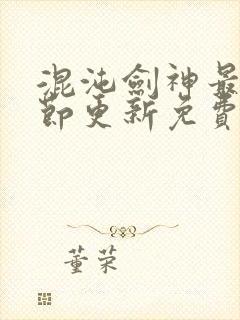 混沌劍神最
節更新免費
董荣